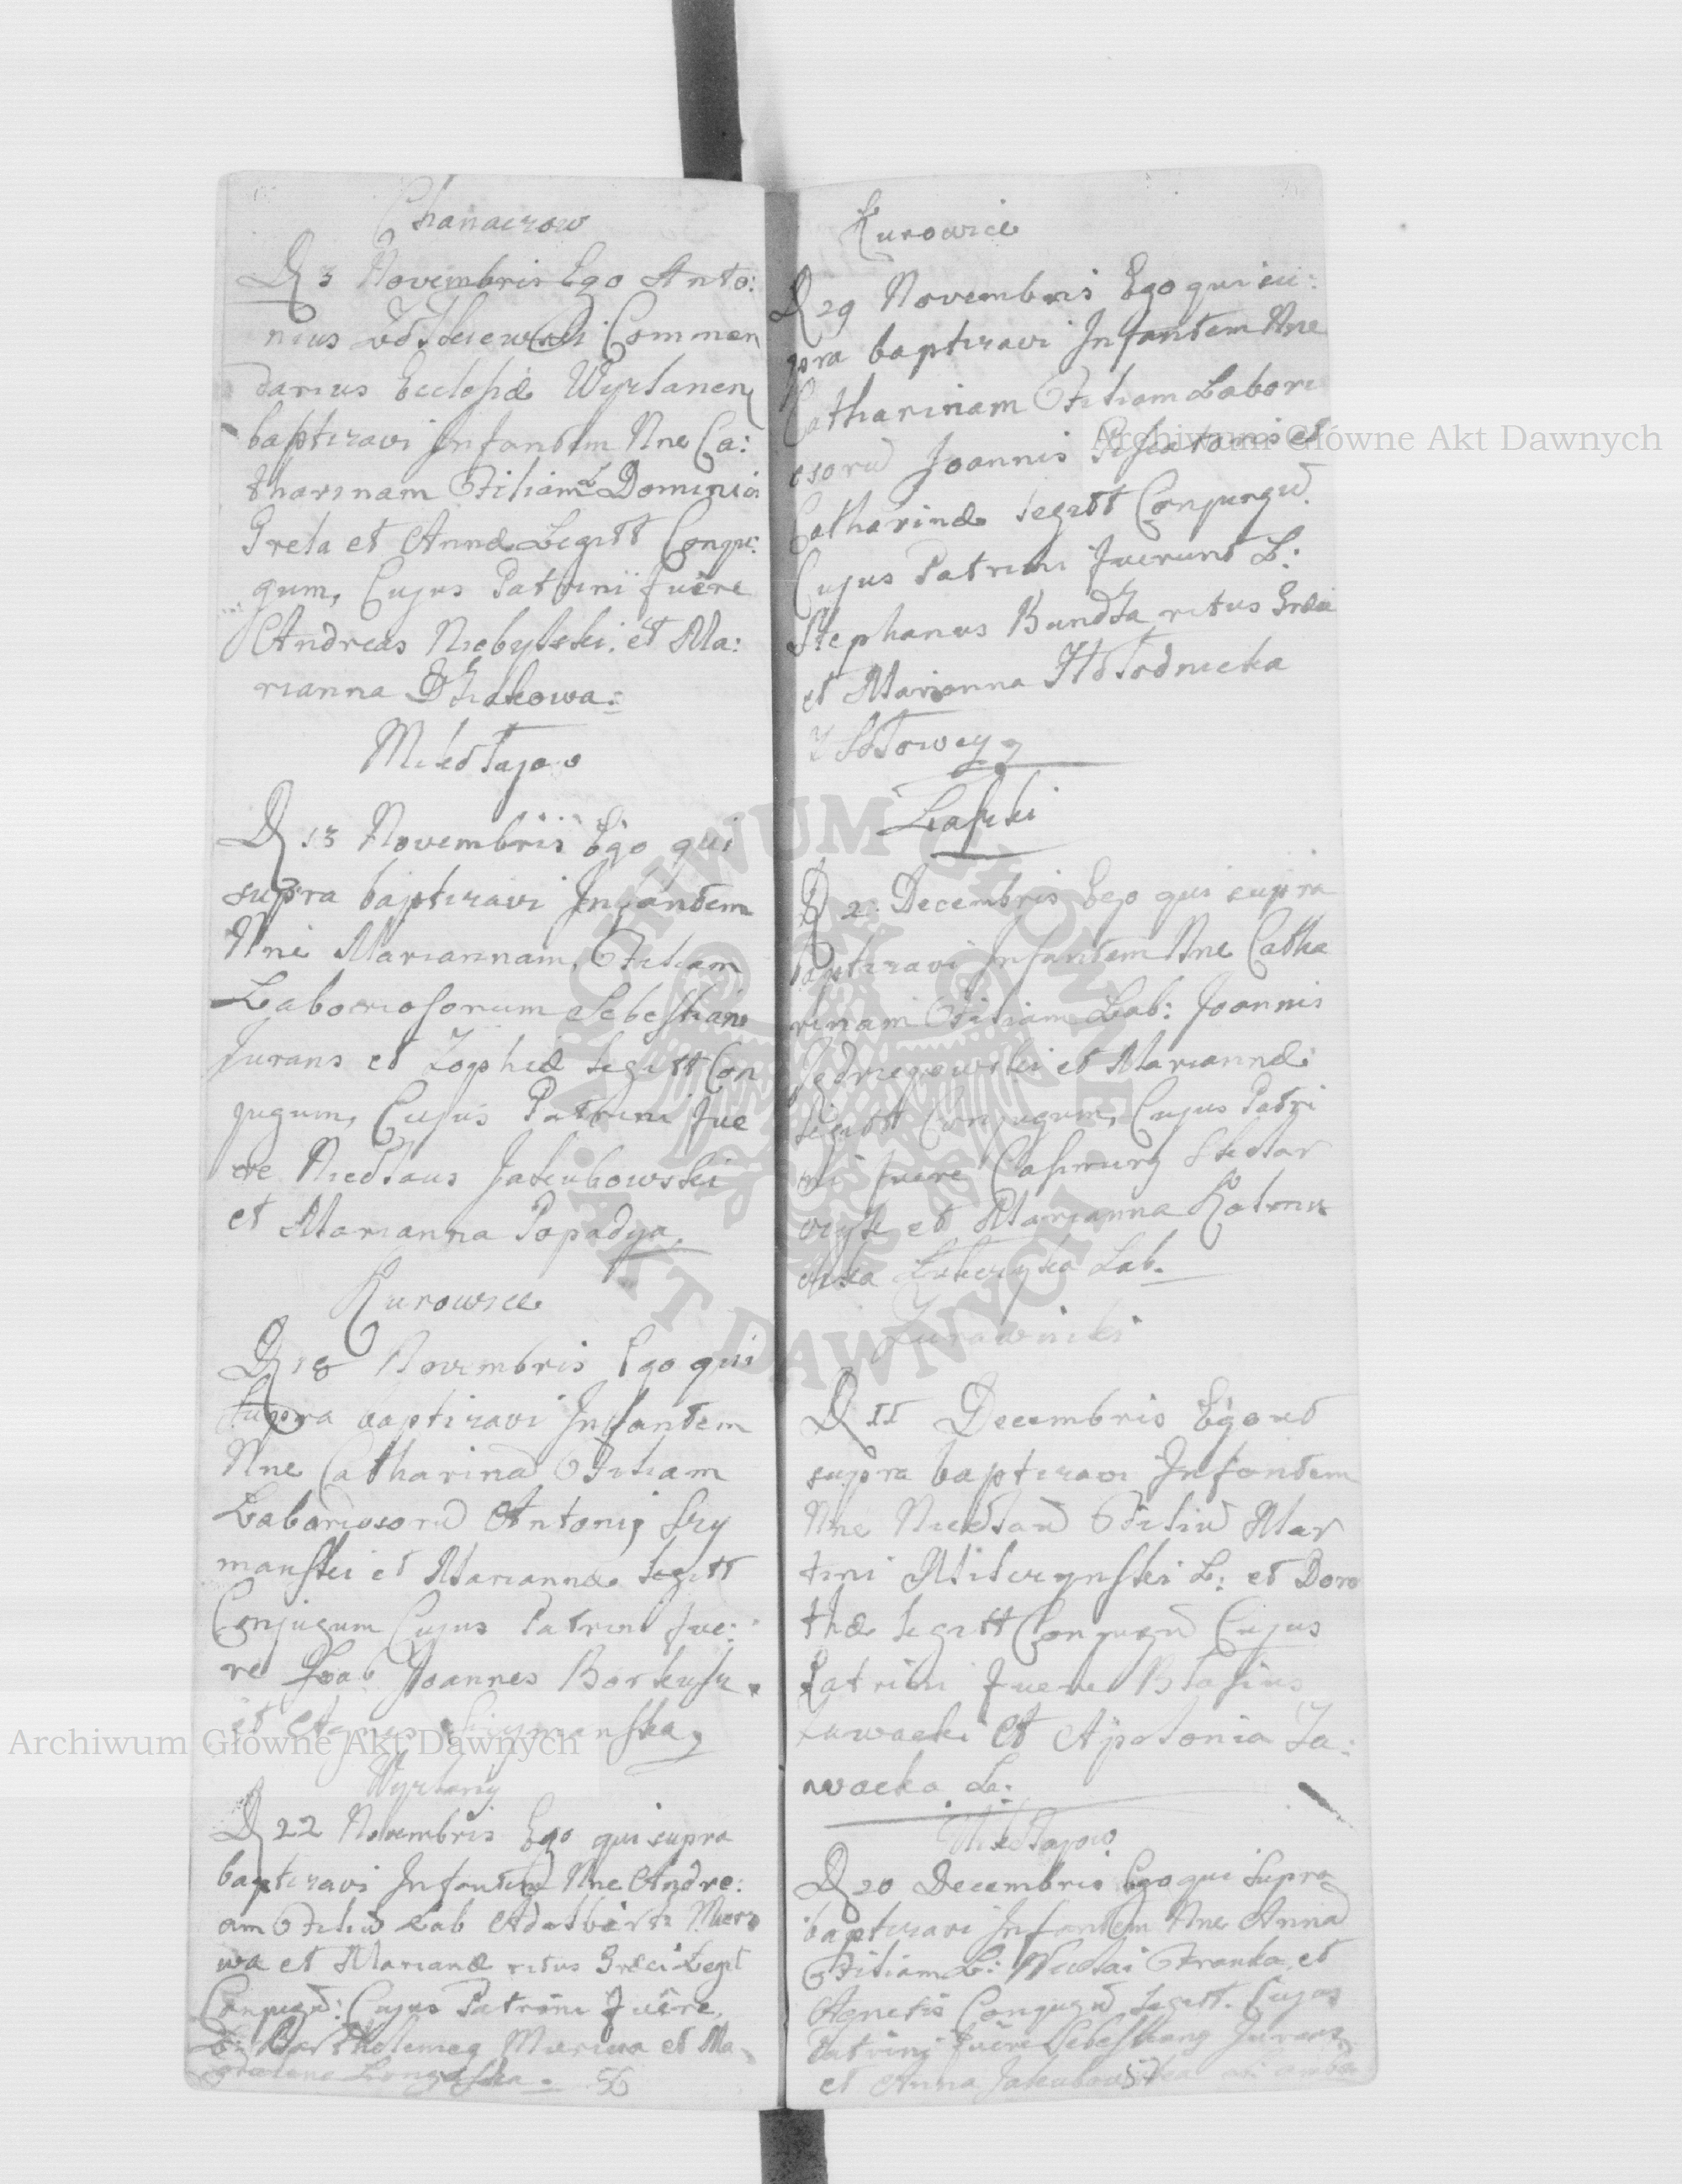 Chanaczow
D 3 Novembris Ego Anto:
nius Commen
darius Ecclesiæ Wyzlanen
baptizavi Infantem Nne Ca:
tharinam Filiam L Dominici
Greta et Annæ Legitt Conju:
gum, Cujus Patrini fuere
Andreas Niebylski et Ma:
rianna Dziakowa.
Mikołajow
D 13 Novembris Ego qui
supra baptizavi Infantem
Nne Mariannam, Filiam
Laboriosorum Sebestiani
Jurans et Zophiæ Legitt Con
jugum, Cujus Patrini fue
re Nicolaus Jakubowski
et Marianna Popadya,
Kurowice
D 18 Novembris Ego qui
Supra baptizavi Infantem
Nne Catharina Filiam
Laboriosoru Antonij Szy
manski et Mariannæ Legitt
Conjugum Cujus Patrini fue:
re Lab Joannes
et Agnes Szymanska,
Wyzlany
D 22 Novembris Ego qui supra
baptizavi Infantem Nne Andre:
am Filiu Lab Adalberti Mierz
wa et Marianæ ritus Græci Legit
Conjugu: Cujus Patrini fuere
L: Bartholemeg Mierzwa et Ma
gdalena. 56
Kurowice
D 29 Novembris Ego qui su:
pra baptizavi Infantem Nne
Catharinam Filiam Labori
osoru Joannis Piscatoris et
Catharinæ Legitt Conjungu.
Cujus Patrini fuerunt L:
Stephanus Bundza ritus Græci
et Marianna
Laszki
D 2. Decembris Ego qui supra
baptizavi Infantem Nne Catha
rinam Filiam Lab: Joannis
et Mariannæ
Legitt Conjugum, Cujus Patri
ni fuere Casimirg
et Marianna
Lab.
Zurawniki
D 11 Decembris Ego ut
supra baptizavi Infantem
Nne Nicolau Filiu Mar
tini L: et Doro
thæ Legitt Conjugu Cujus
Patrini fuere Blasius
et Apolonia Za:
wacka La:
Mikołajow
D 20 Decembris Ego qui Supra
baptizavi Infantem Nne Anna
Filiam L: Nicolai Franka et
Agnetis Conjugu Legitt. Cujus
Patrini fuere Sebestiang Jurans
et Anna Jakubowska
57
Archiwum Główne Akt Dawnych
Archiwum Główne Akt Dawnych
ARCHIWUM GŁÓWNE · AKT DAWNYCH ·